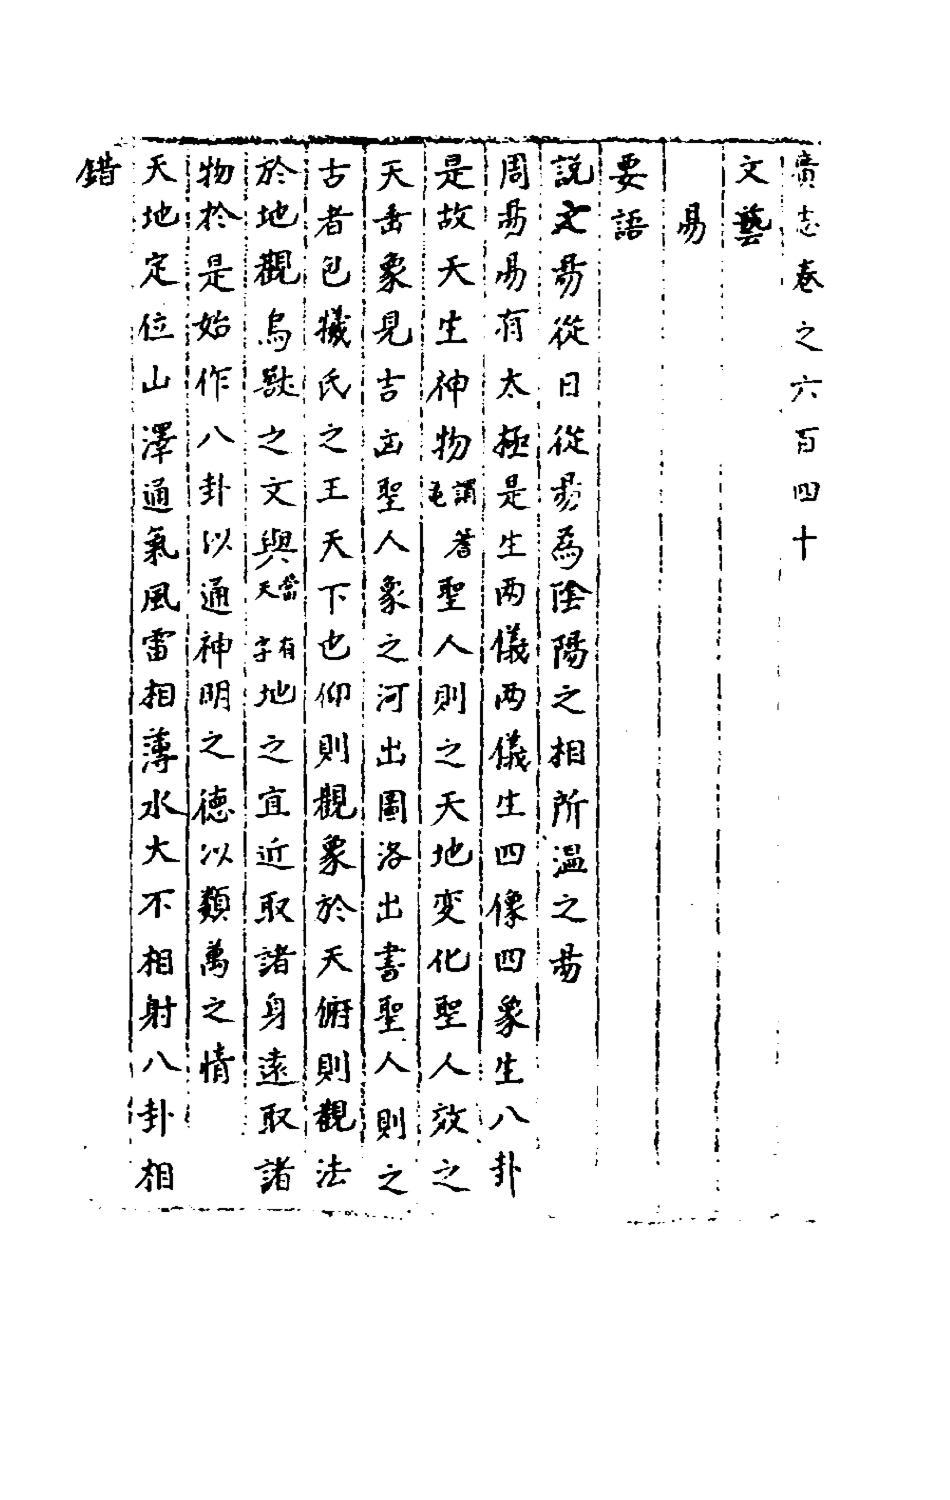 廣志卷之六百四十
文藝
易
要語
説文易從日從易為陰陽之相所温之易
周易易有太極是生两儀两儀生四像四象生八卦
是故天生神物謂蓍龟聖人則之天地変化聖人效之
天垂象見吉凶聖人象之河出圖洛出書聖人則之
古者包犧氏之王天下也仰則觀象於天俯則觀法
於地觀鳥獸之文與當有天字地之宜近取諸身遠取諸
物於是始作八卦以通神明之德以類萬之情
天地定位山澤通氣風雷相薄水大不相射八卦相
錯